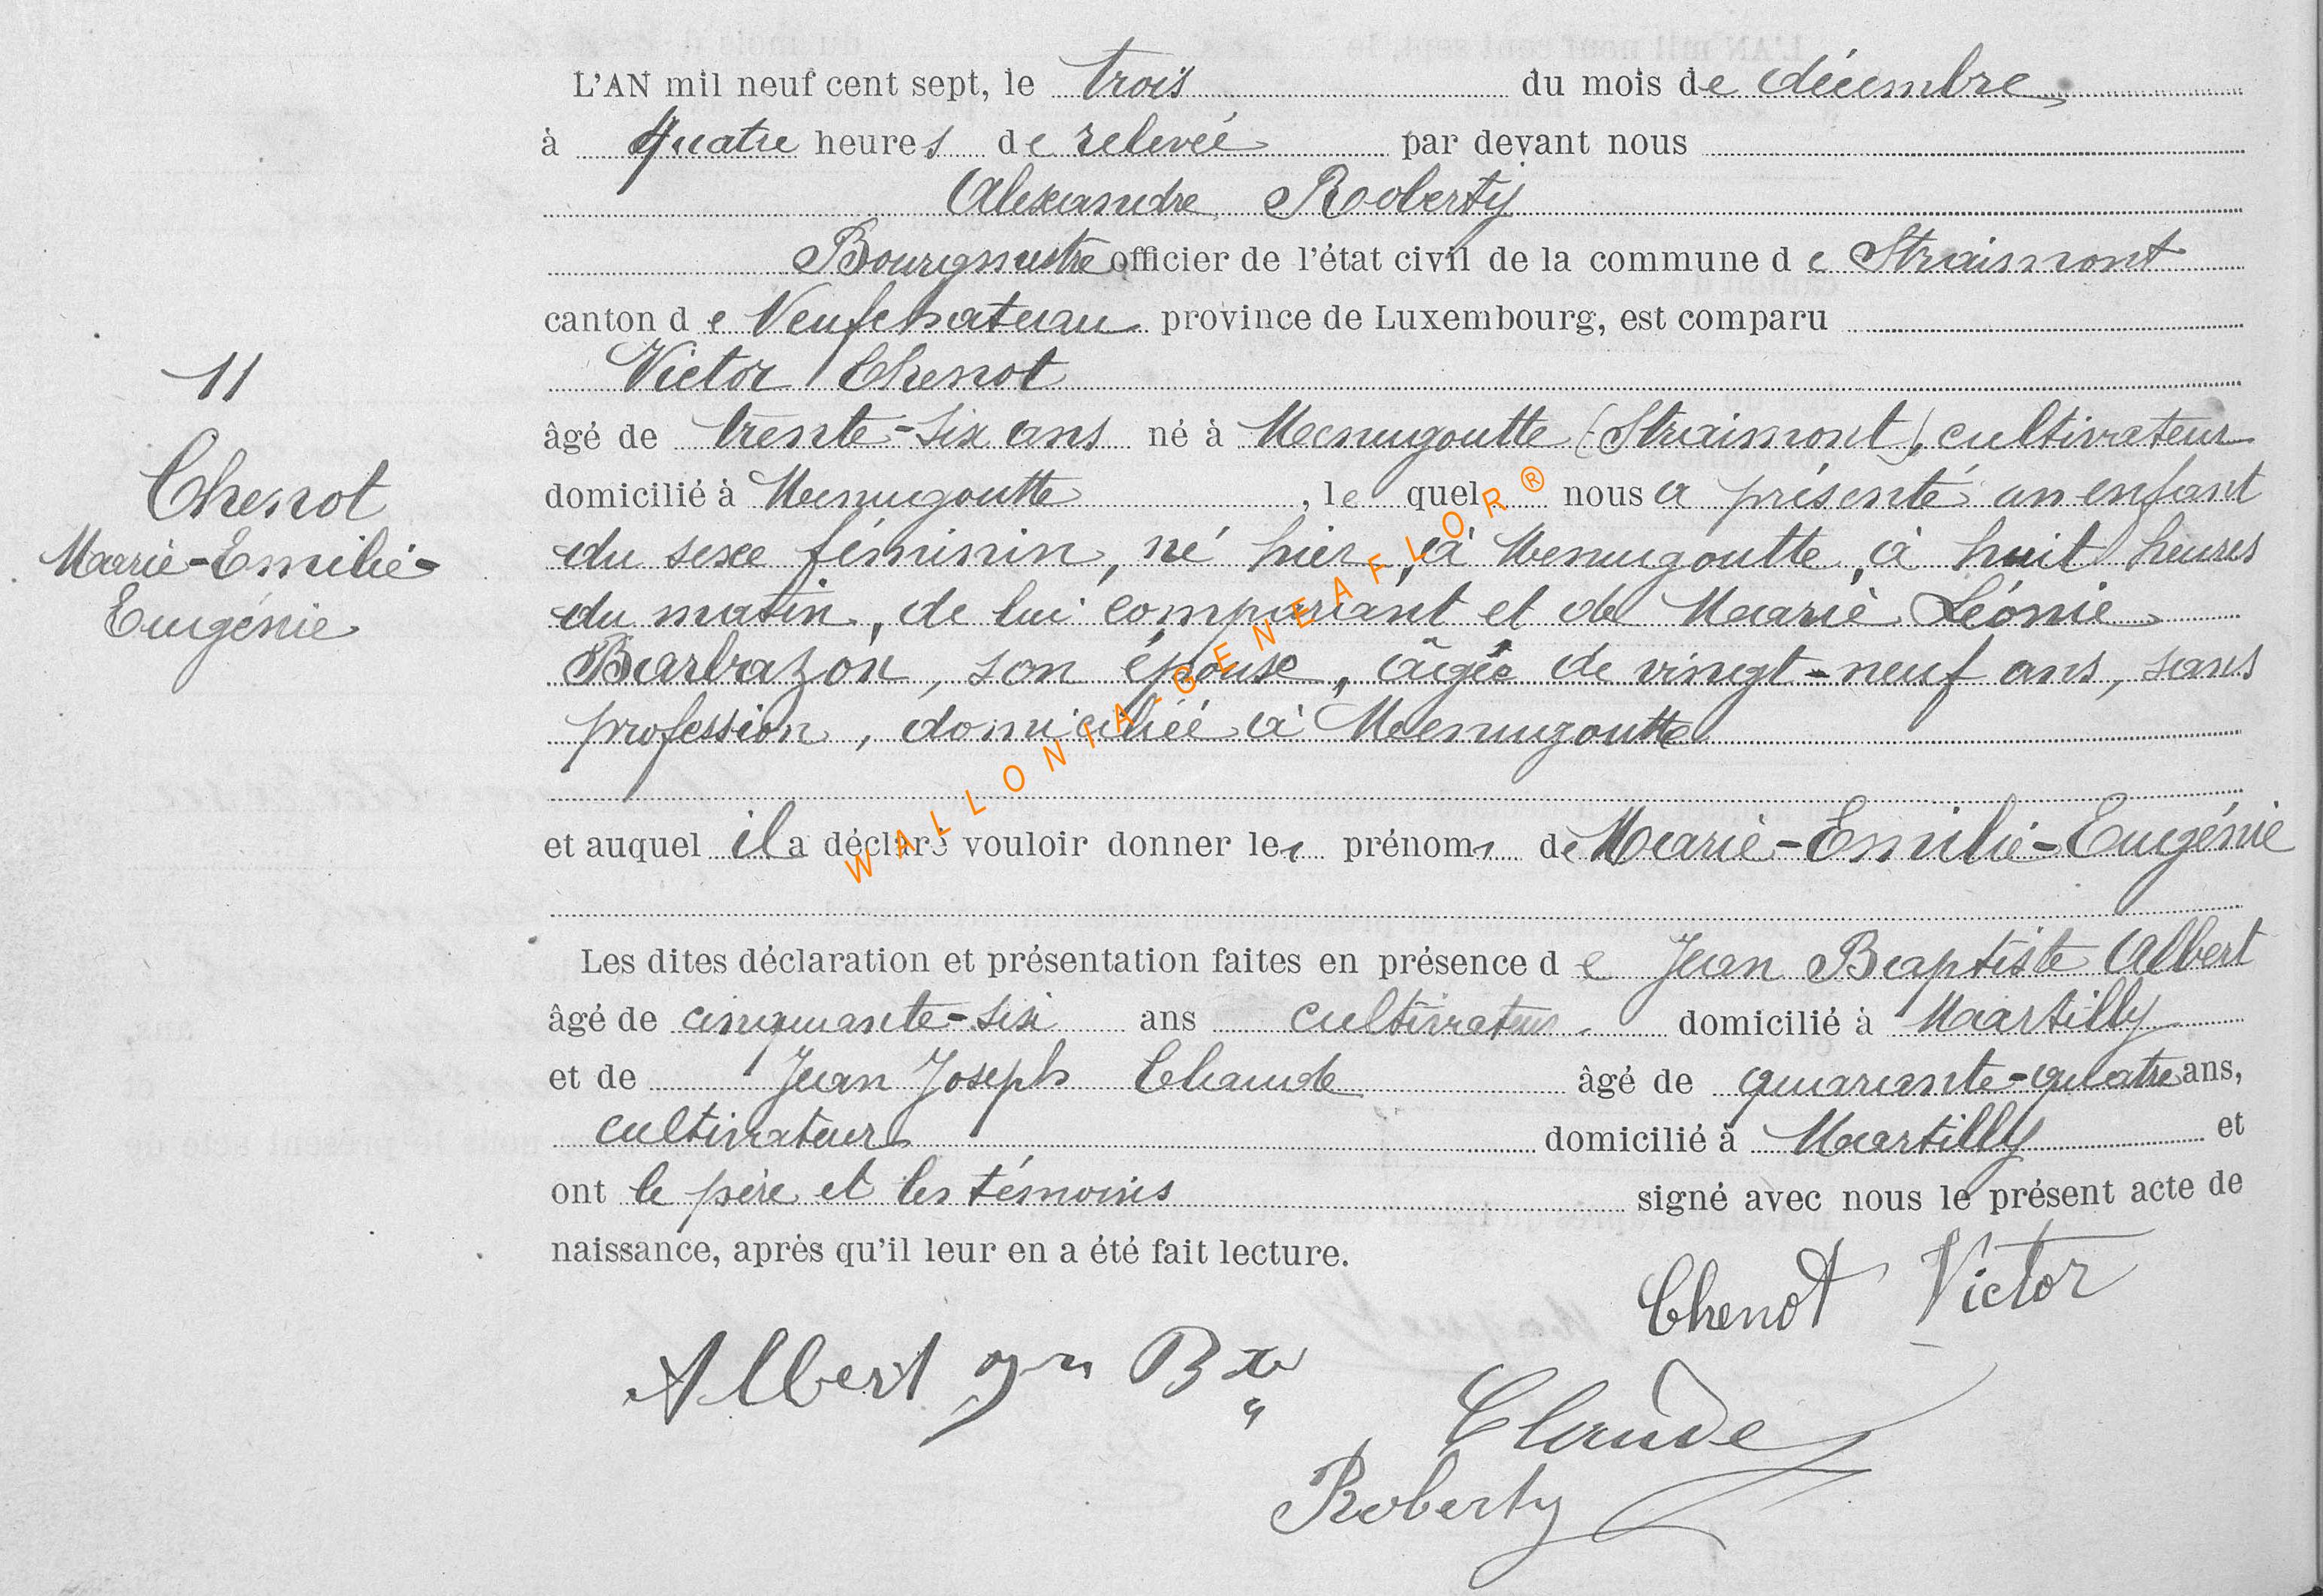 L'AN mil neuf cent sept, le trois du mois de décembre,
à quatre heures de relevée par devant nous
Alexandre Roberty
Bourgmestre officier de l'état civil de la commune de Straimont
canton de Neufchateau province de Luxembourg, est comparu
Victor Chenot
11
âgé de trente-six ans né à Menugoutte (Straimont), cultivateur
Chenot
domicilié à Menugoutte, lequel nous a présenté un enfant
Marie-Emilie-
du sexe féminin, né hier, à Menugoutte, à huit heures
Eugénie
du matin, de lui comparant et de Marie Léonie
Barbazon, son épouse, âgée de vingt-neuf ans, sans
profession, domiciliée à Menugoutte
et auquel il a déclaré vouloir donner les prénoms de Marie-Emilie-Eugénie
WALLONIA-GENEAFLOR®
Les dites déclaration et présentation faites en présence de Jean Baptiste Albert
âgé de cinquante-six ans cultivateur domicilié à Martilly
et de Jean Joseph Claude âgé de quarante-quatre ans,
cultivateur domicilié à Martilly et
ont le père et les témoins signé avec nous le présent acte de
naissance, après qu'il leur en a été fait lecture.
Chenot Victor
Albert Jn Bte
Claude
Roberty